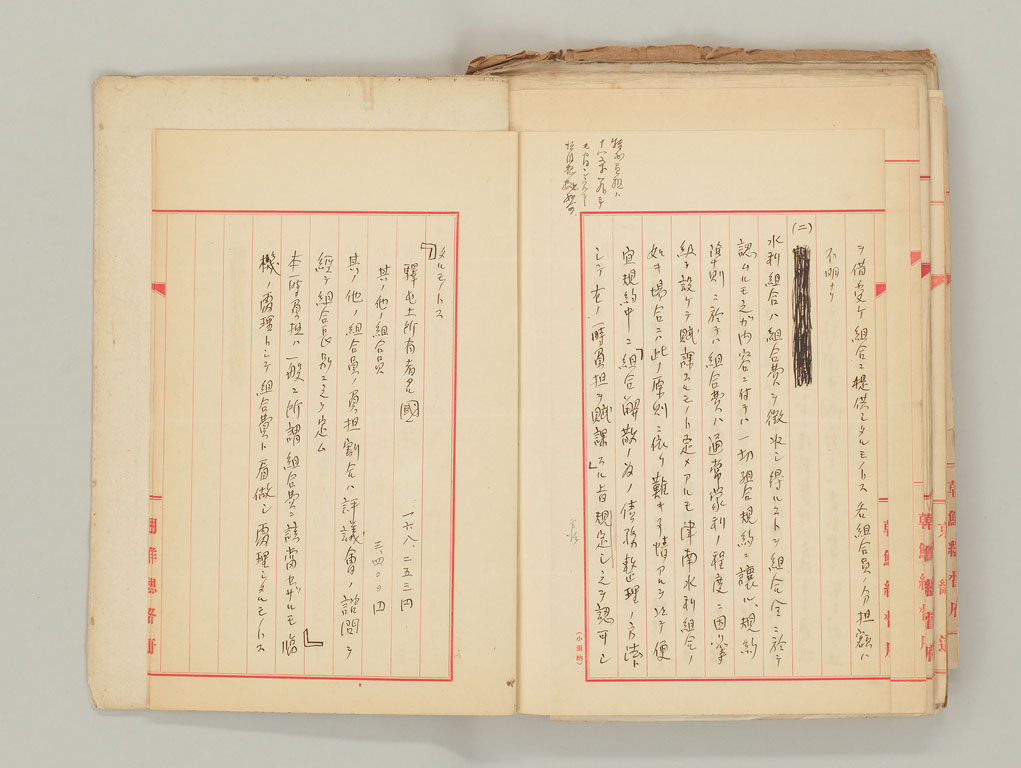 ヲ借受ケ組合ニ提供シタルモノトス各組合員ノ分担額ハ
不明ナリ
(二)
水利組合ハ組合費ヲ徴収シ得ルコトヲ組合令ニ於テ
認ムルモ之ガ内容ニ付テハ一切組合規約ニ譲ル、規約
準則ニ於テハ組合費ハ通常蒙利ノ程度ニ因リ等
級ヲ設ケテ賦課スルモノト定メアルモ津南水利組合ノ
如キ場合ニハ此ノ原則ニ依リ難キ事情アルヲ以テ便
宜規約中ニ「組合解散ノ為ノ債務整理ノ方法ト
シテ左ノ一時負担ヲ賦課スル」旨規定シ之ヲ認可シ
(小栗納)
タルモノトス
「釋也土所有者タル國 一六八、二五三円
其ノ他ノ組合員 三、四〇〇円
其ノ他ノ組合員ノ負担割合ハ評議會ノ諮問ヲ
経テ組合長別ニ之ヲ定ム」
本一時負担ハ一般ニ所謂組合費ニ該当セザルモ臨
機ノ處理トシテ組合費ト看做シ處理シタルモノトス
朝鮮總督府